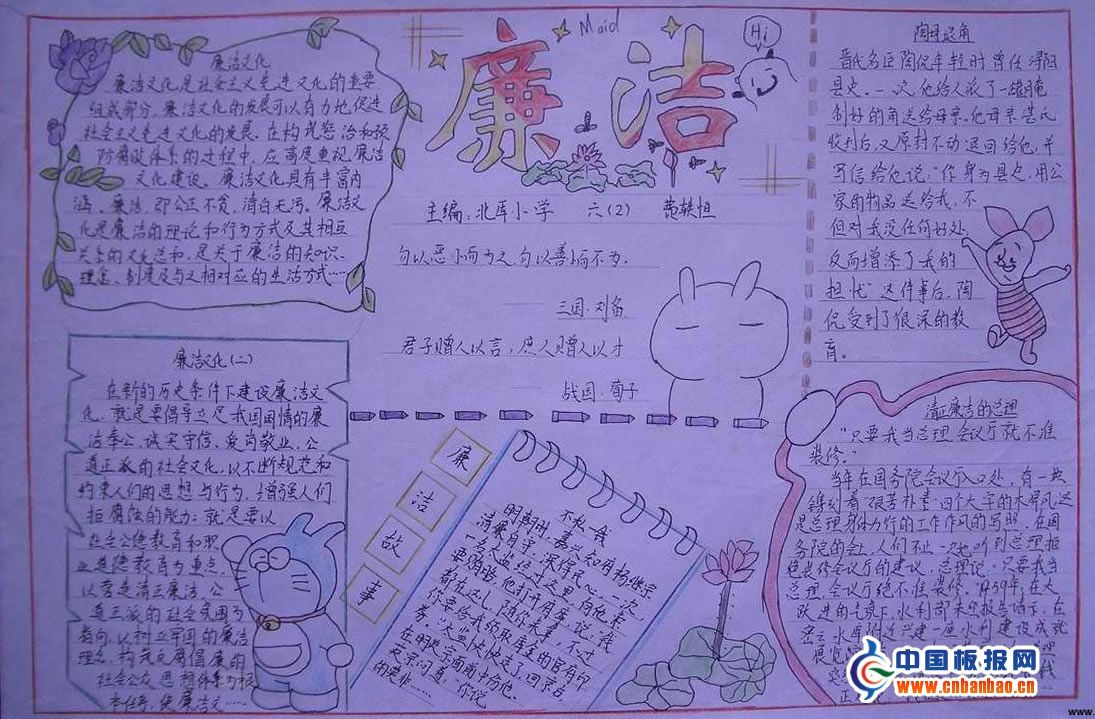 廉洁文化
廉洁文化是社会主义先进文化的重要
组成部分，廉洁文化的发展可以有力地促进
社会主义先进文化的发展。在构筑惩治和预
防腐败体系的过程中，应高度重视廉洁
文化建设。廉洁文化具有丰富内
涵。廉洁，即公正不贪，清白无污。廉洁文
化是廉洁的理论和行为方式及其相互
关系的文化总和，是关于廉洁的知识、
理念、制度及与之相对应的生活方式……
Maid
Hi
廉洁
主编：北厍小学 六(2)
勿以恶小而为之勿以善小而不为.
三国.刘备
君子赠人以言，庶人赠人以才
战国.荀子
陶母退鱼
晋代名臣陶侃年轻时曾任浔阳
县吏。一次，他给人派了一罐腌
制好的鱼送给母亲。他母亲湛氏
收到后，又原封不动退回给他，并
写信给他说："你身为县吏，用公
家的物品送给我，不
但对我没任何好处
反而增添了我的
担忧。"这件事后，陶
侃受到了很深的教
育。
廉洁文化(二)
在新的历史条件下建设廉洁文
化，就是要倡导立足我国国情的廉
洁奉公、诚实守信、爱岗敬业、公
道正派的社会文化，以不断规范和
约束人们的思想与行为，增强人们
拒腐蚀的能力；就是要以
社会公德教育和职
业道德教育为重点，
以营造清正廉洁、公
道正派的社会氛围为
着向，以树立牢固的廉洁
理念、构筑反腐倡廉的
社会公众思想体系为根
本任务，使廉洁文……
廉
洁
故
事
不私一钱
明朝时，嘉兴知府杨继宗
清廉自守，深得民心。一次，
一名太监经过这里，向他索
要贿赂，他打开府库，说："钱
都在这儿，随你来拿，不过
你要给我领取库金的官府印
券。"太监怏怏走了，回京后，
在明宪宗面前中伤他。
宪宗问道："你说
的莫非……
清正廉洁的总理
"只要我当总理，会议厅就不准
装修。"
当年在国务院会议厅入口处，有一块
镌刻着"艰苦朴素"四个大字的木屏风，这
是总理身体力行的工作作风的写照。在国
务院的会上，人们不止一次地听到总理拒
绝装修会议厅的建议，总理说："只要我当
总理，会议厅绝不准装修。"1959年，在大
跃进的气氛下，水利部未经报告请示，在
密云水库附近兴建一座水利建设成就
展览
中国板报网
www.cnbanbao.cn
www.